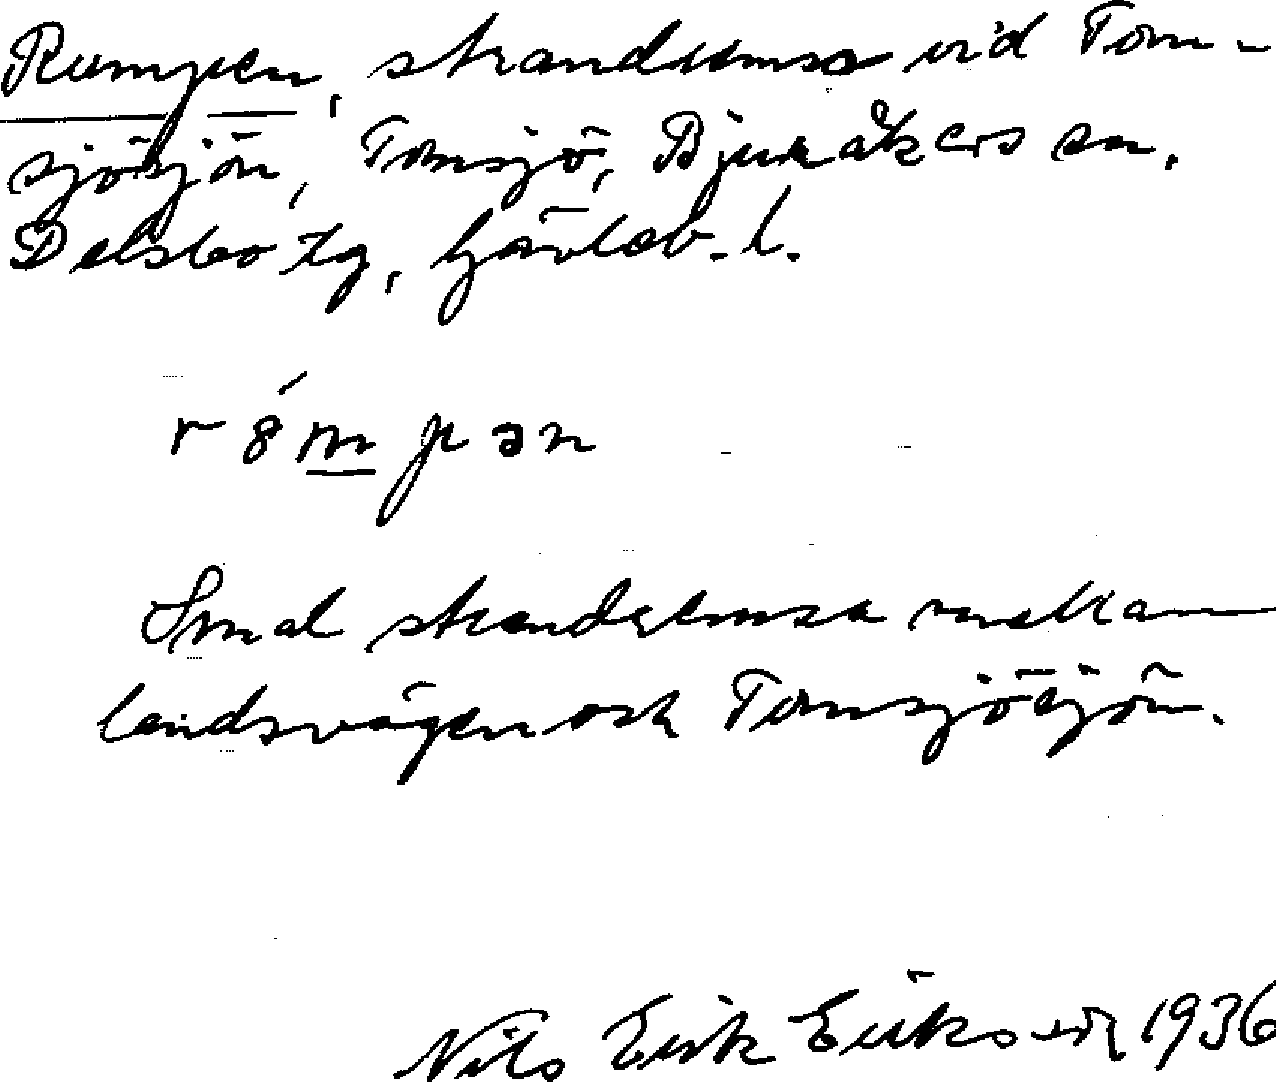 Rumpen, strandremsa vid Tom-
sjösjön, Tomsjö, Bjuråkers sn.
Delsbo tg, Gävleb. l.
r8́mpən
Smal strandremsa mellan
landsvägen och Tomsjösjön.
Nils Erik Eriksson 1936